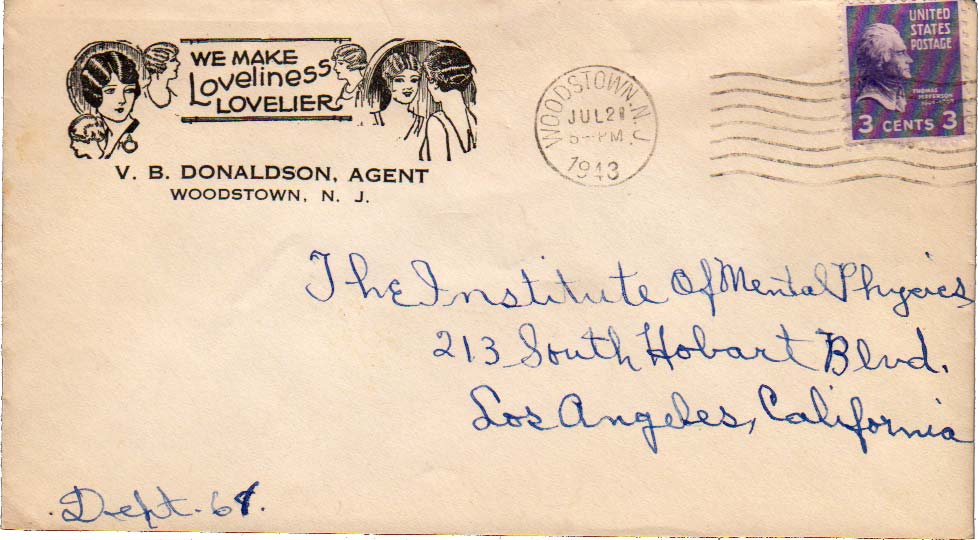 WE MAKE
Loveliness
LOVELIER
V. B. DONALDSON, AGENT
WOODSTOWN, N. J.
WOODSTOWN. N.J.
JUL 2
PM
1943
UNITED
STATES
POSTAGE
THOMAS
JEFFERSON
3 CENTS 3
The Institute Of Mental Physics
213 South Hobart Blvd.
Los Angeles, California
Dept. 61.